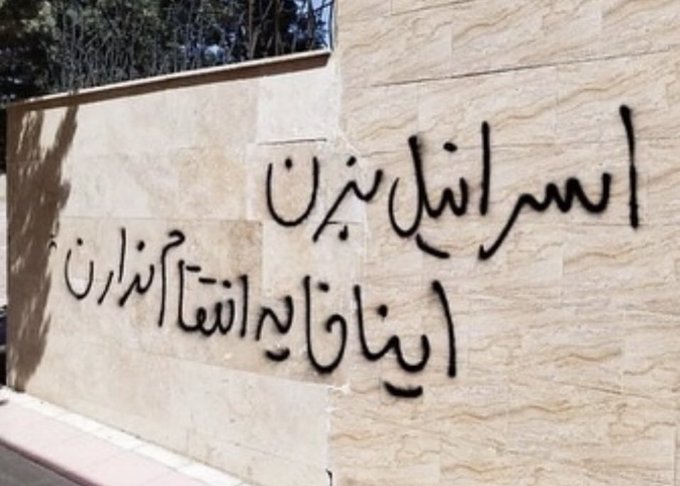 اسرائیل بزن
اینا خایه انتقام ندارن